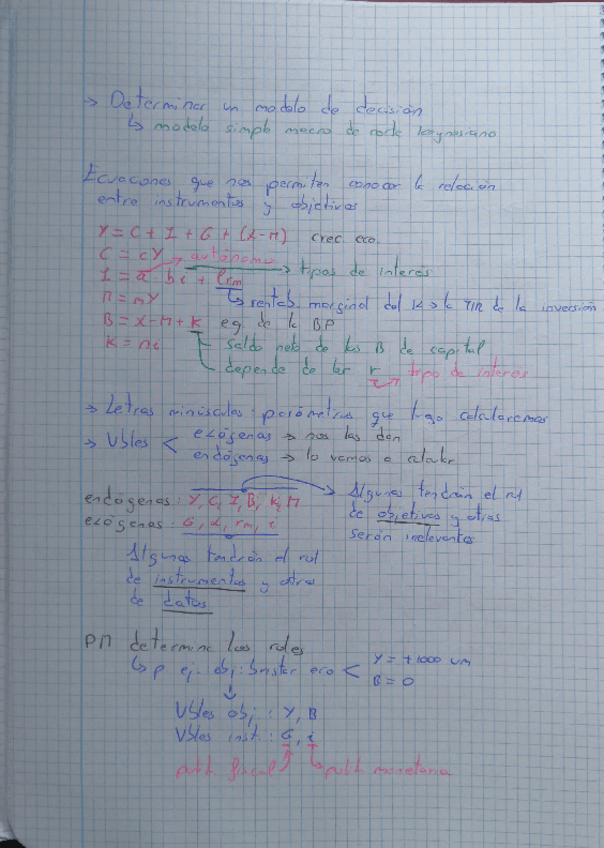 → Determinar un modelo de decisión
↳ modelo simple macro de corte keynesiano
Ecuaciones que nos permiten conocer la relación
entre instrumentos y objetivos
Y = C + I + G + (X-M) crec. eco.
C = cY autónomo
I = a - bi + lrm → tipos de interés
M = mY ↳ rentab. marginal del K → la TIR de la inversión
B = X-M + K eq. de la BP
K = ni saldo neto de las B de capital
depende de ter r tipo de interés
→ Letras minúsculas: parámetros que luego calcularemos
→ Vbles < exógenas → nos las dan
endógenas → lo vamos a calcular
endógenas: Y, C, I, B, K, M → Algunas tendrán el rol
exógenas: G, X, rm, i de objetivos y otras
serán irrelevantes
Algunas tendrán el rol
de instrumentos y otras
de datos
PM determina los roles
↳ p. ej. obj: bnstar eco < Y = +1000 um
B = 0
↓
Vbles obj: Y, B
Vbles inst: G, i
polít. fiscal ↳ polít. monetaria